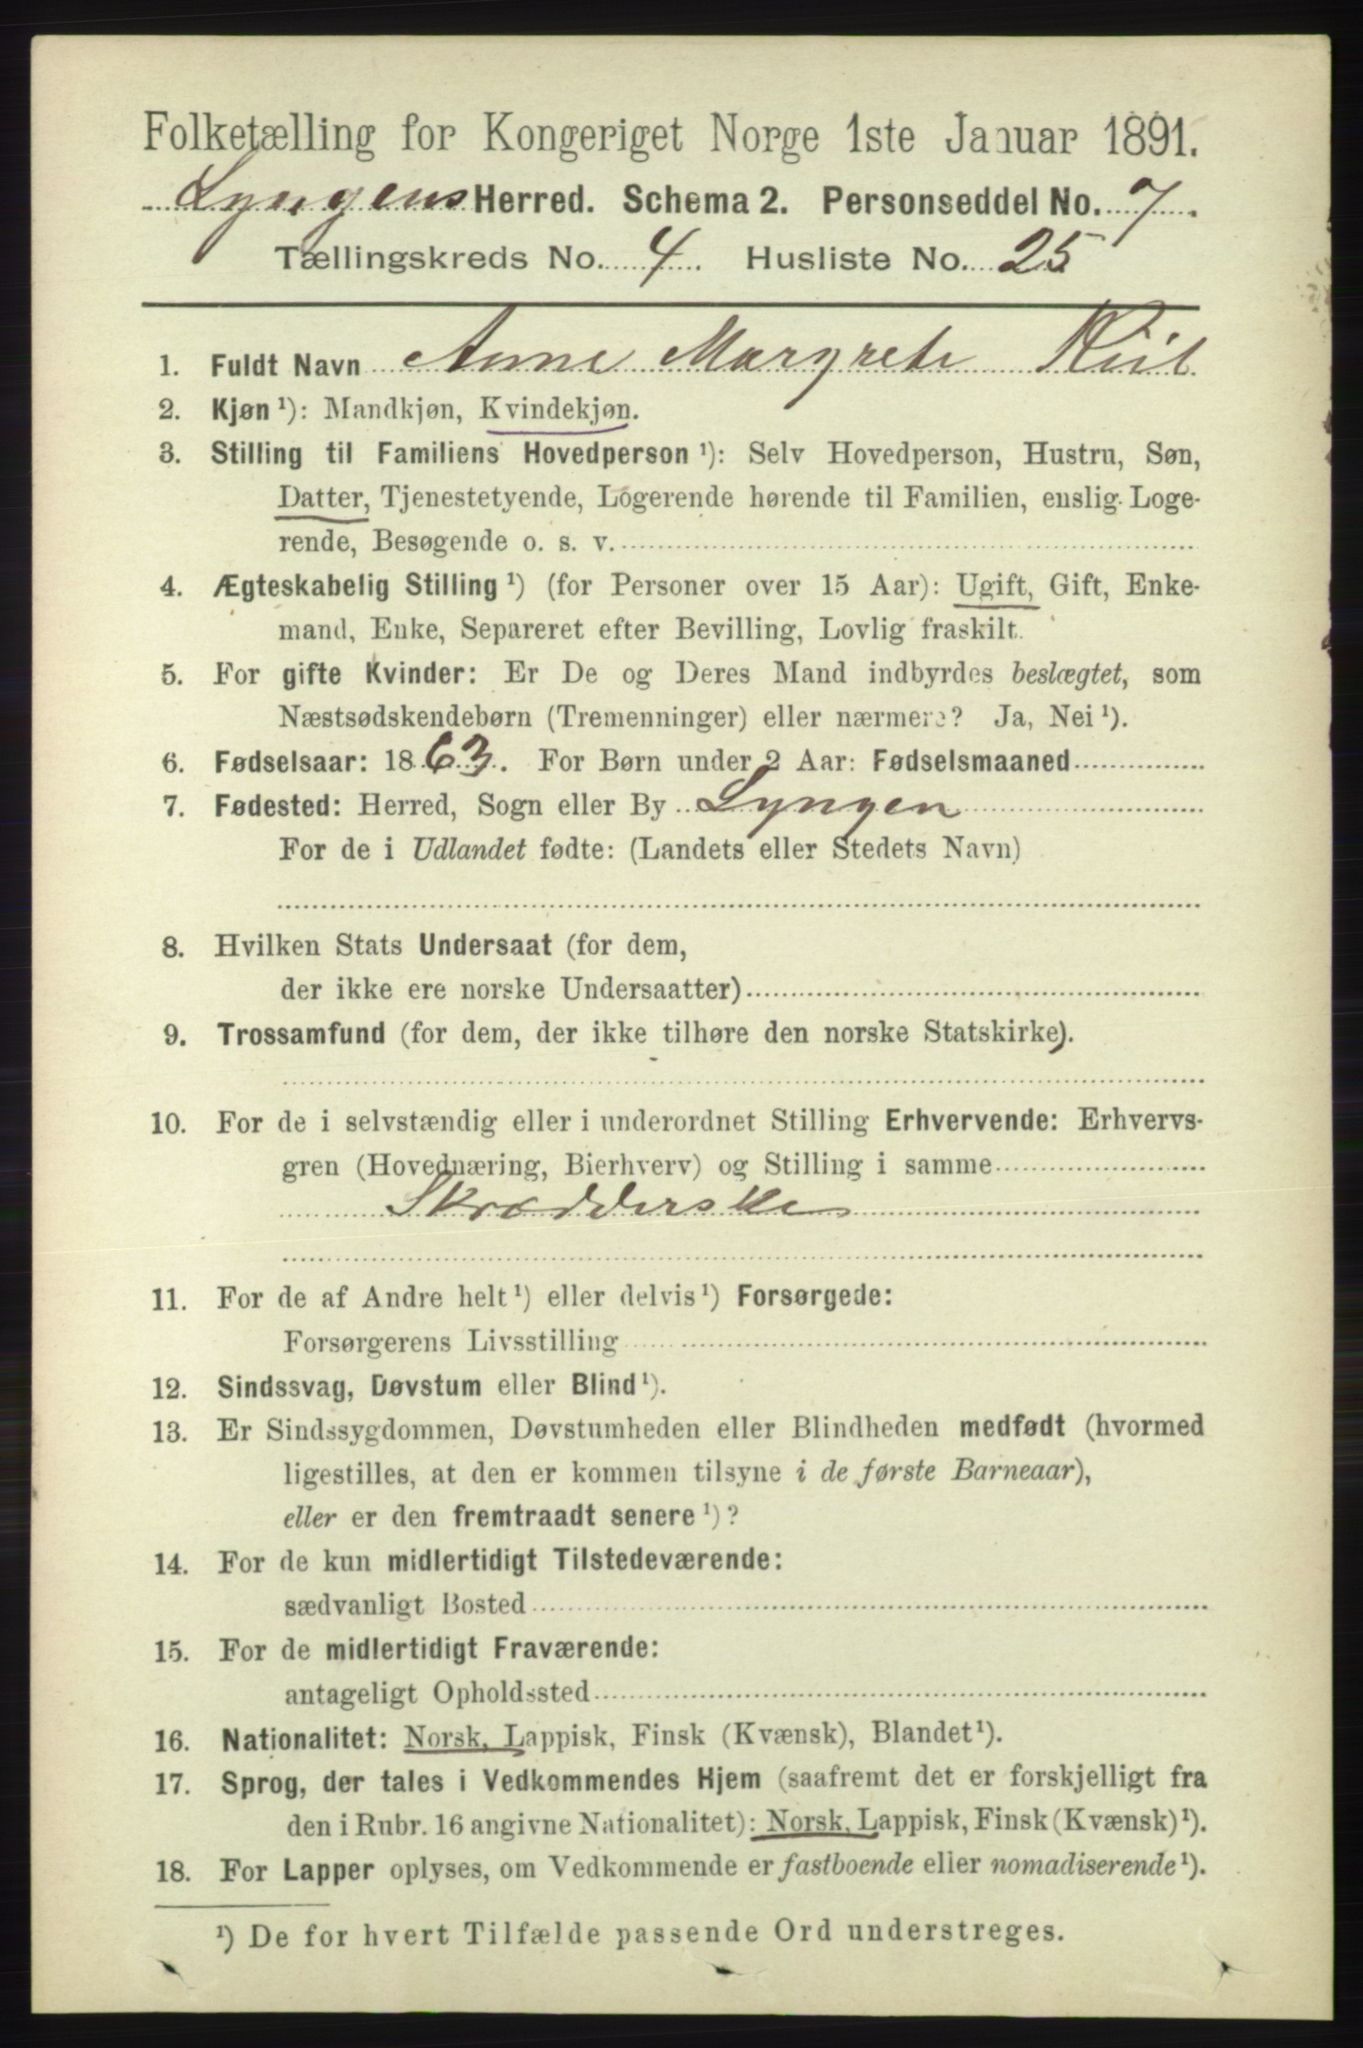 Folketælling for Kongeriget Norge 1ste Januar 1891.
Lyngens Herred. Schema 2. Personseddel No. 7.
Tællingskreds No. 4. Husliste No. 25
1. Fuldt Navn Anne Margrete Kiil
2. Kjøn ¹): Mandkjøn, Kvindekjøn.
3. Stilling til Familiens Hovedperson ¹): Selv Hovedperson, Hustru, Søn,
Datter, Tjenestetyende, Logerende hørende til Familien, enslig Loge-
rende, Besøgende o. s. v.
4. Ægteskabelig Stilling ¹) (for Personer over 15 Aar): Ugift, Gift, Enke-
mand, Enke, Separeret efter Bevilling, Lovlig fraskilt.
5. For gifte Kvinder: Er De og Deres Mand indbyrdes beslægtet, som
Næstsødskendebørn (Tremenninger) eller nærmere? Ja, Nei ¹).
6. Fødselsaar: 1863. For Børn under 2 Aar: Fødselsmaaned
7. Fødested: Herred, Sogn eller By Lyngen
For de i Udlandet fødte: (Landets eller Stedets Navn)
8. Hvilken Stats Undersaat (for dem,
der ikke ere norske Undersaatter)
9. Trossamfund (for dem, der ikke tilhøre den norske Statskirke).
10. For de i selvstændig eller i underordnet Stilling Erhvervende: Erhvervs-
gren (Hovednæring, Bierhverv) og Stilling i samme
Skrædderske
11. For de af Andre helt ¹) eller delvis ¹) Forsørgede:
Forsørgerens Livsstilling
12. Sindssvag, Døvstum eller Blind ¹).
13. Er Sindssygdommen, Døvstumheden eller Blindheden medfødt (hvormed
ligestilles, at den er kommen tilsyne i de første Barneaar),
eller er den fremtraadt senere ¹)?
14. For de kun midlertidigt Tilstedeværende:
sædvanligt Bosted
15. For de midlertidigt Fraværende:
antageligt Opholdssted
16. Nationalitet: Norsk, Lappisk, Finsk (Kvænsk), Blandet ¹).
17. Sprog, der tales i Vedkommendes Hjem (saafremt det er forskjelligt fra
den i Rubr. 16 angivne Nationalitet): Norsk, Lappisk, Finsk (Kvænsk) ¹).
18. For Lapper oplyses, om Vedkommende er fastboende eller nomadiserende ¹).
¹) De for hvert Tilfælde passende Ord understreges.